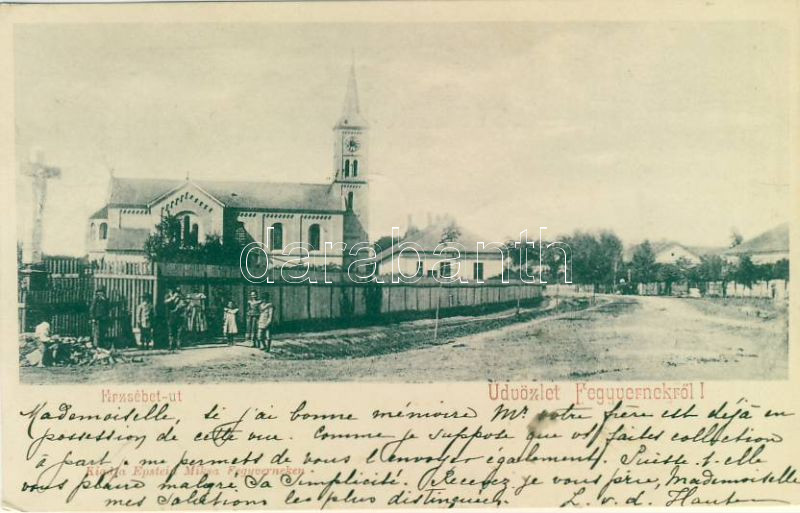 darabanth.com
Erzsébet-ut
Üdvözlet Fegyvernekről!
Mademoiselle, si j'ai bonne mémoire Mr. votre frère est déjà en
possession de cette vue. Comme je suppose que vs faites collection
à part, je me permets de vous l'envoyer également. Puisse-t-elle
Kiadta Epstein Miksa Fegyverneken
vous plaire malgré sa simplicité. Recevez je vous prie, Mademoiselle
mes salutations les plus distinguées. L. v. d.